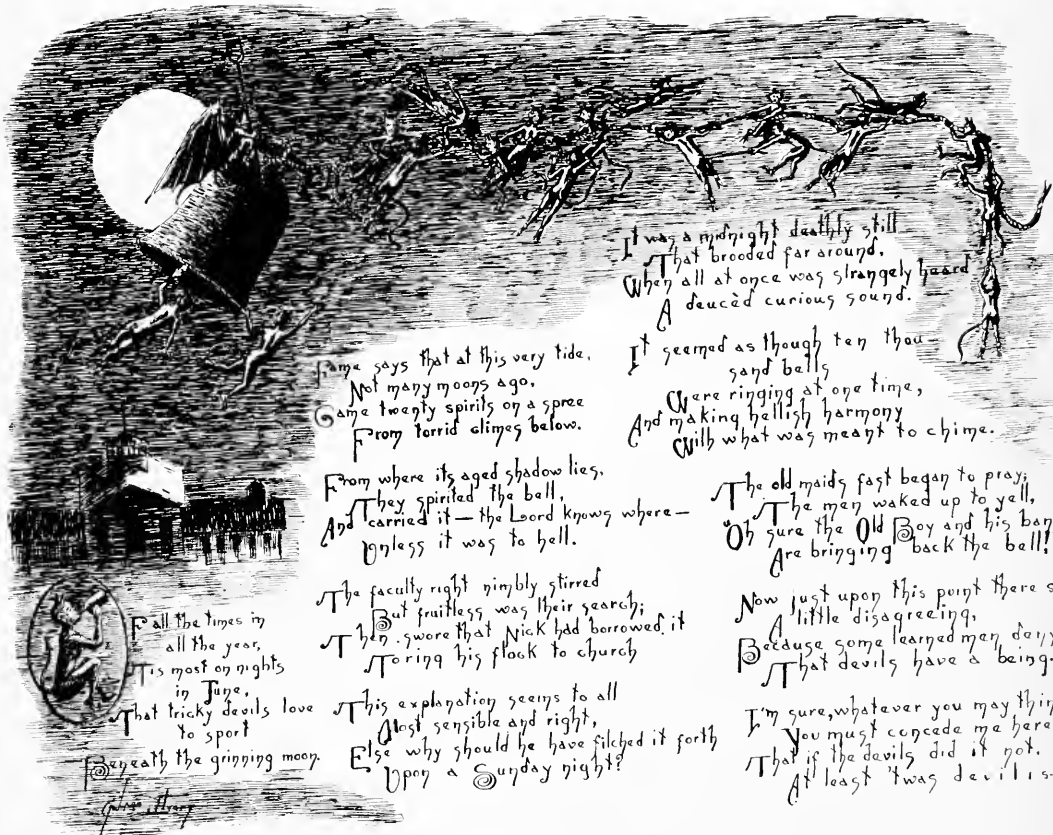 Of all the times in
all the year,
Tis most on nights
in June,
That tricky devils love
to sport
Beneath the grinning moon.
Fame says that at this very tide,
Not many moons ago,
Came twenty spirits on a spree
From torrid climes below.
From where its aged shadow lies,
They spirited the bell,
And carried it — the Lord knows where —
Unless it was to hell.
The faculty right nimbly stirred
But fruitless was their search;
Then swore that Nick had borrowed it
To ring his flock to church
This explanation seems to all
Most sensible and right,
Else why should he have filched it forth
Upon a Sunday night?
It was a midnight deathly still
That brooded far around,
When all at once was strangely heard
A deucèd curious sound.
It seemed as though ten thou-
sand bells
Were ringing at one time,
And making hellish harmony
With what was meant to chime.
The old maids fast began to pray;
The men waked up to yell,
"Oh sure the Old Boy and his ban
Are bringing back the bell!
Now just upon this point there s
A little disagreeing,
Because some learned men deny
That devils have a being.
I'm sure, whatever you may thin
You must concede me here
That if the devils did it not.
At least 'twas devilis-